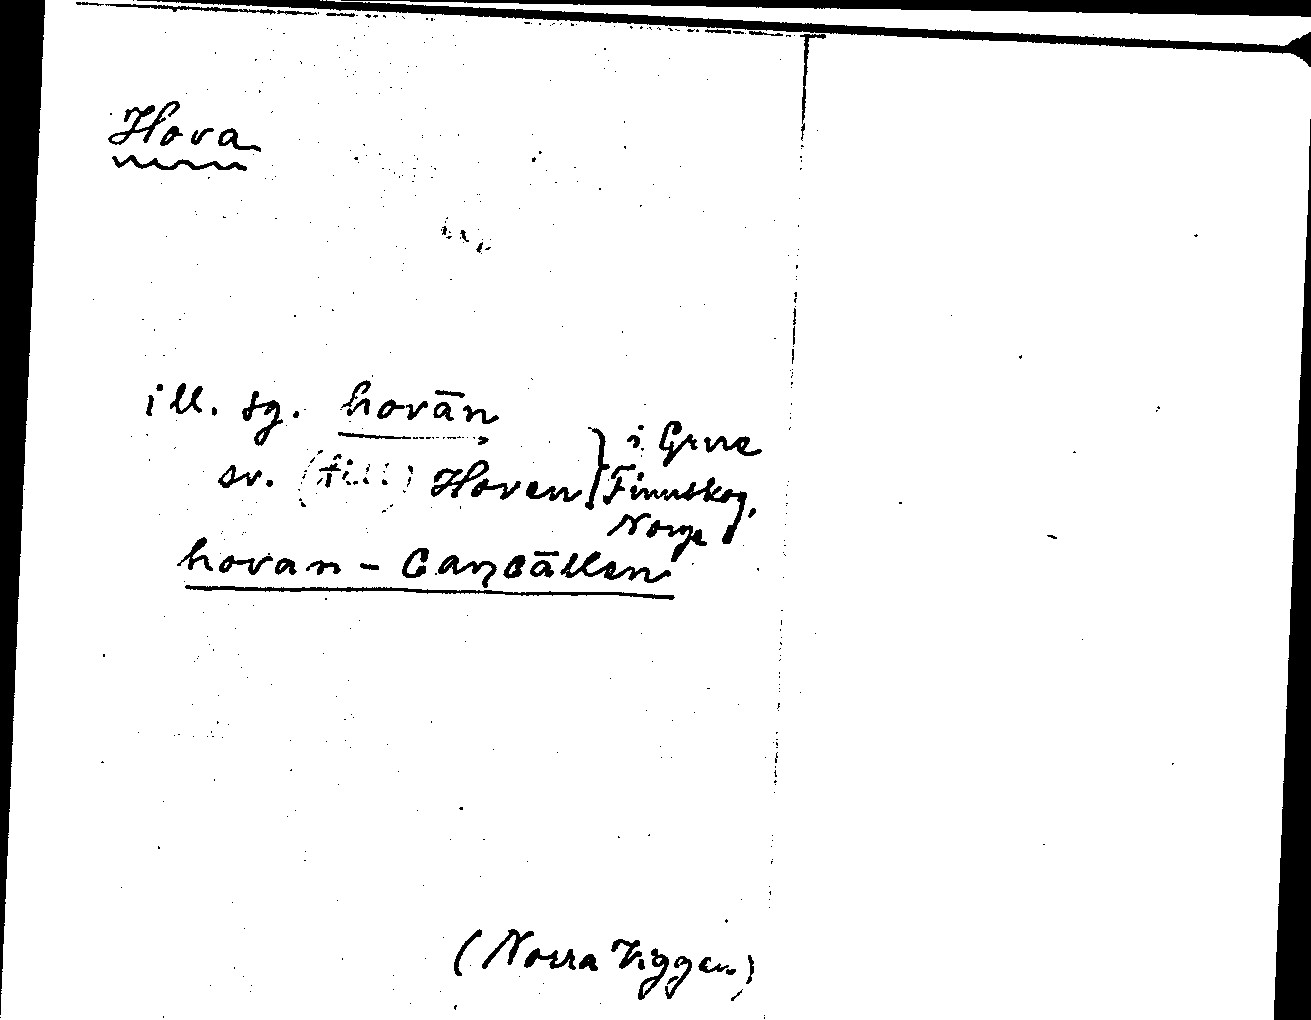 Hova
ill. sg. hovān
sv. (till) Hoven } i Grue
Finnskog,
Norge
hovan-
(Norra Viggen)